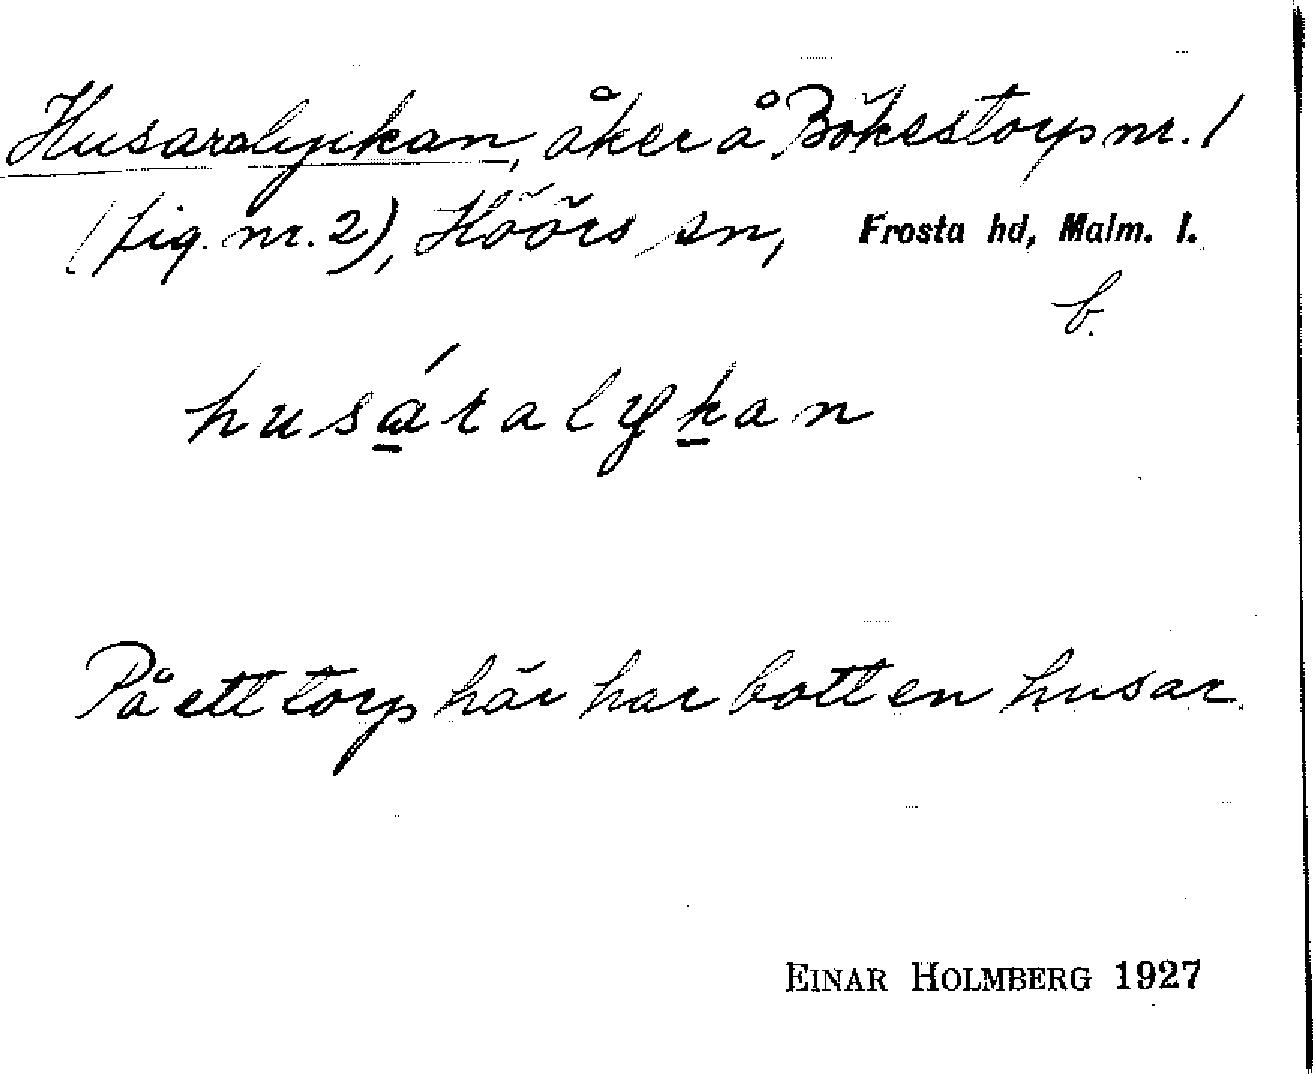 Husaralyckan, åker å Bökestorp nr. 1
(fig. nr. 2), Höörs sn, Frosta hd, Malm. l.
b.
husáralykan
På ett torp här har bott en husar.
EINAR HOLMBERG 1927